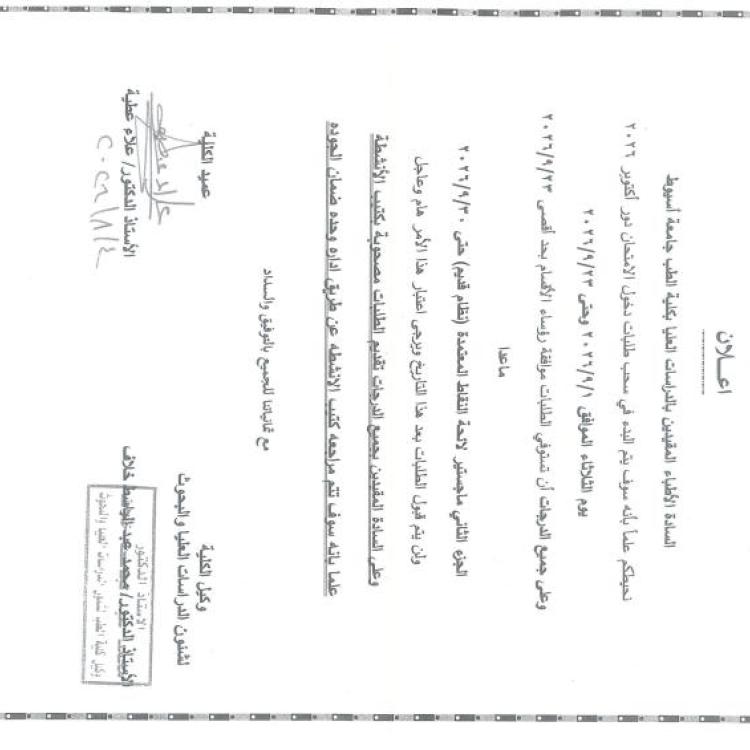 اعــلان
السادة الأطباء المقيدين بالدراسات العليا بكلية الطب جامعة أسيوط
نحيطكم علماً بأنه سوف يتم البدء في سحب طلبات دخول الامتحان دور أكتوبر ٢٠٢٦
يوم الثلاثاء الموافق ٢٠٢٦/٩/١ وحتى ٢٠٢٦/٩/٢٣
وعلى جميع الدرجات أن تستوفي الطلبات موافقة رؤساء الأقسام بحد أقصى ٢٠٢٦/٩/٢٣
ماعدا
الجزء الثاني ماجستير لائحة النقاط المعتمدة (نظام قديم) حتى ٢٠٢٦/٩/٣٠
ولن يتم قبول الطلبات بعد هذا التاريخ ويرجى اعتبار هذا الأمر هام وعاجل
وعلى السادة المقيدين بجميع الدرجات تقديم الطلبات مصحوبة بكتيب الأنشطة
علما بانه سوف تتم مراجعه كتيب الانشطه عن طريق اداره وحده ضمان الجوده
مع تمنياتنا للجميع بالتوفيق والسداد
وكيل الكلية
لشئون الدراسات العليا والبحوث
الأستاذ الدكتور/ محمد عبد الباسط خلاف
الاستاذ الدكتور
وكيل كلية الطب لشئون الدراسات العليا والبحوث
عميد الكلية
الأستاذ الدكتور/ علاء عطية
٢٠٢٦/٨/٤